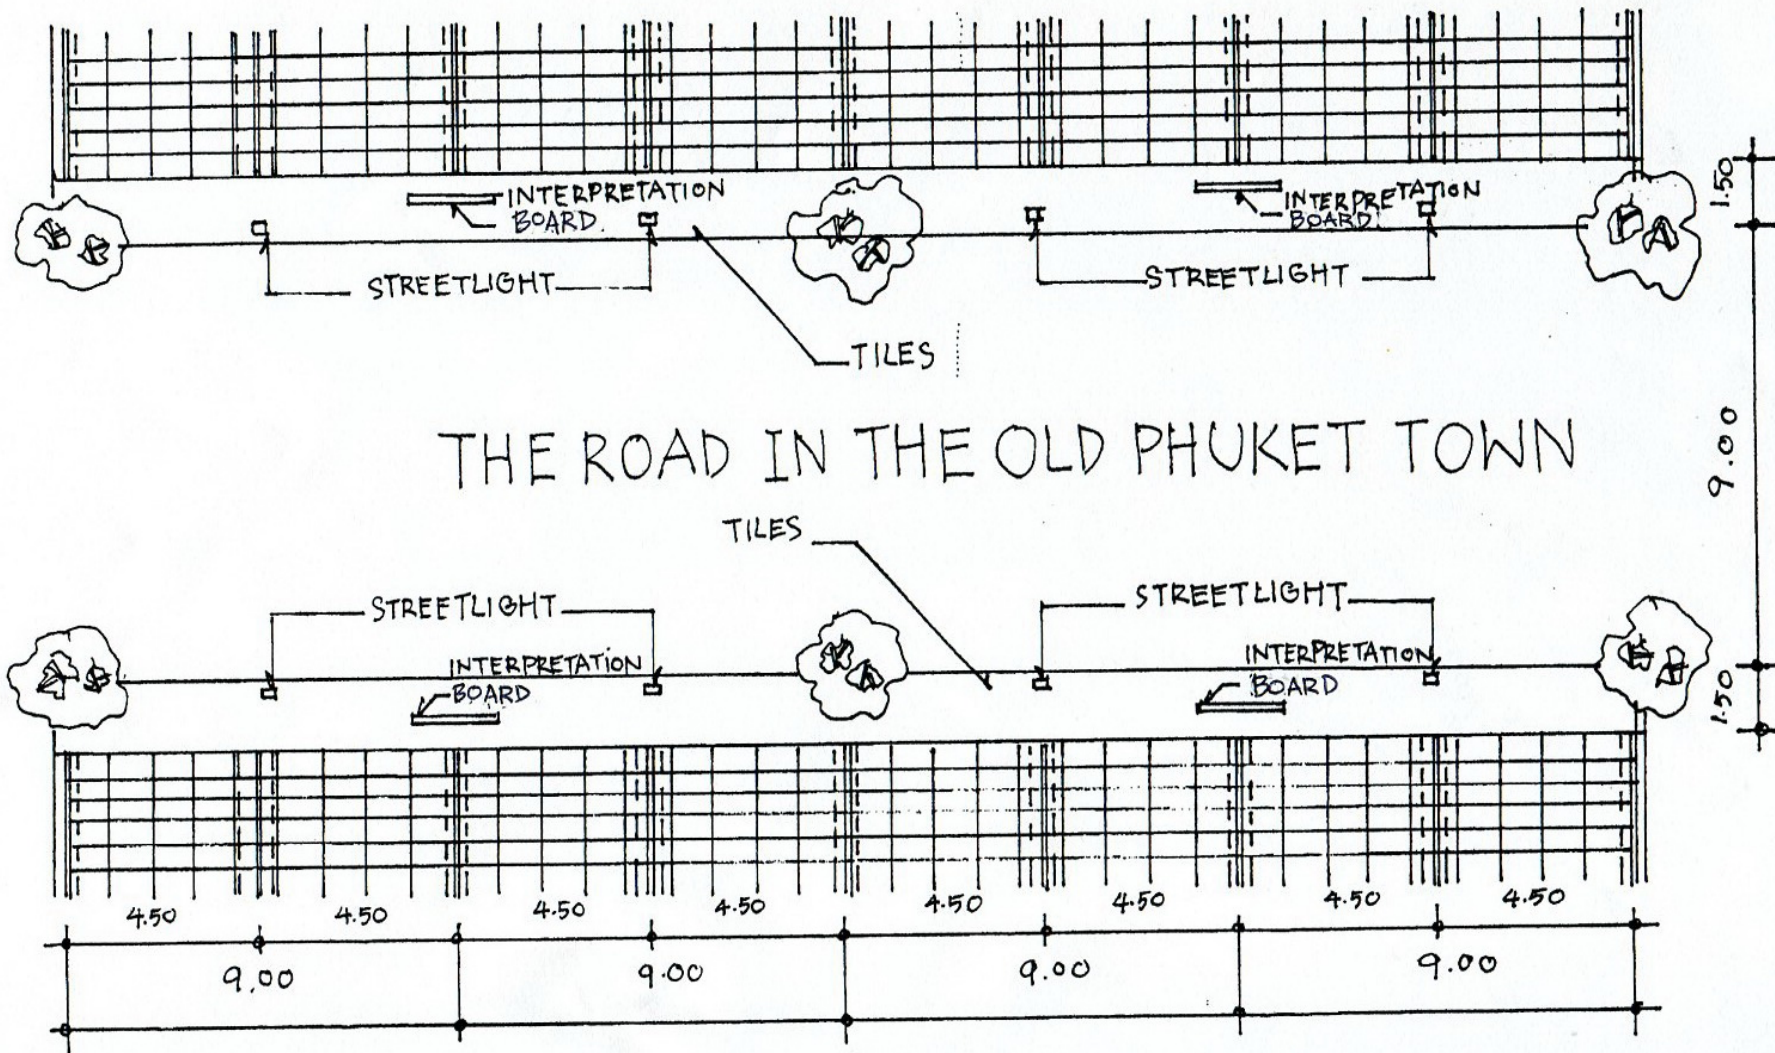 INTERPRETATION
BOARD.
INTERPRETATION
BOARD.
1.50
STREETLIGHT
STREETLIGHT
TILES
THE ROAD IN THE OLD PHUKET TOWN
9.00
TILES
STREETLIGHT
STREETLIGHT
INTERPRETATION
BOARD
INTERPRETATION
BOARD
1.50
4.50 4.50 4.50 4.50 4.50 4.50 4.50 4.50
9.00 9.00 9.00 9.00